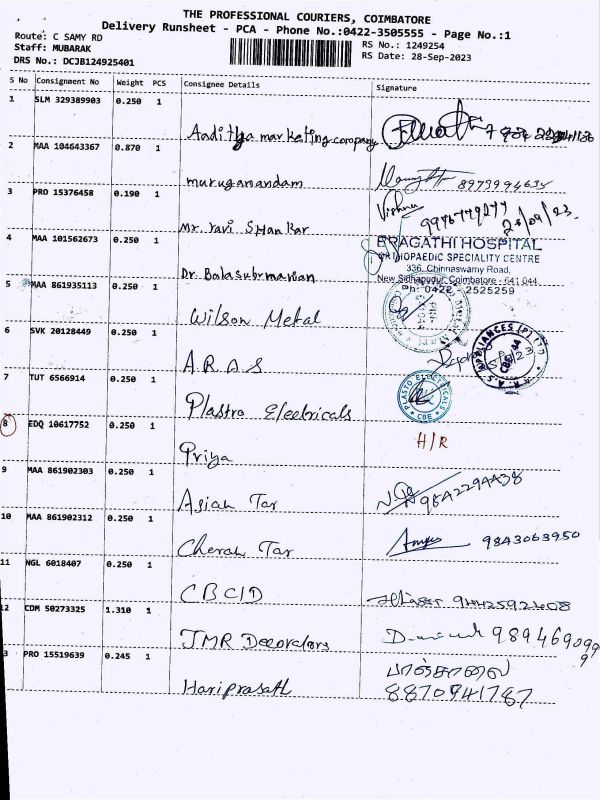 THE PROFESSIONAL COURIERS, COIMBATORE
Delivery Runsheet - PCA - Phone No.:0422-3505555 - Page No.:1
Route: C SAMY RD
RS No.: 1249254
Staff: MUBARAK
RS Date: 28-Sep-2023
DRS No.: DCJB124925401
S No Consignment No Weight PCS Consignee Details Signature
1 SLM 329389903 0.250 1
Aaditya marketing company
2 MAA 104643367 0.870 1
muruganandam 8973994635
3 PRO 15376458 0.190 1
Mr. ravi Shankar 28/09/23
4 MAA 101562673 0.250 1
PRAGATHI HOSPITAL
ORTHOPAEDIC SPECIALITY CENTRE
336, Chinnaswamy Road,
New Sidhapudur, Coimbatore - 641 044.
Ph: 0422 - 2525259
Dr. Balasubramanian
5 MAA 861935113 0.250 1
Wilson Metal
6 SVK 20128449 0.250 1
A.R.A.S
7 TUT 6566914 0.250 1
Plastro Electricals
PLASTO ELECTRICALS
CBE
8 EDQ 10617752 0.250 1
H/R
Priya
9 MAA 861902303 0.250 1
Asian Tar 9842294438
10 MAA 861902312 0.250 1
Cheran Tar 9843063950
11 NGL 6018407 0.250 1
CBCID 9442592408
2 CDM 50273325 1.310 1
JMR Decorators 9894690999
3 PRO 15519639 0.245 1
பாஞ்சாலை
Hariprasath 8870941787